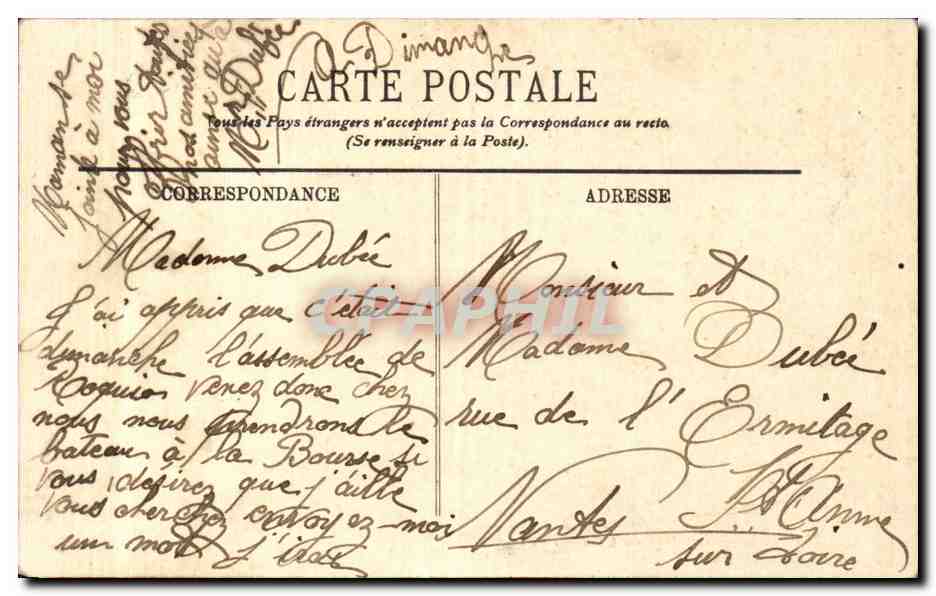 Dimanche
CARTE POSTALE
Tous les Pays étrangers n'acceptent pas la Correspondance au recto
(Se renseigner à la Poste).
CORRESPONDANCE
Madame Dubée
J'ai appris que c'était
dimanche l'assemblée de
venez donc chez
nous nous prendrons le
bateau à la Bourse si
vous désirez que j'aille
vous chercher envoyez-moi
un mot j'irai
Maman se
joint à moi
pour vous
offrir toutes
nos amitiés
ainsi qu'à
Mr Dubée
ADRESSE
Monsieur et
Madame Dubée
rue de l'Ermitage
Ste Anne
Nantes
sur Loire
CPAPHIL